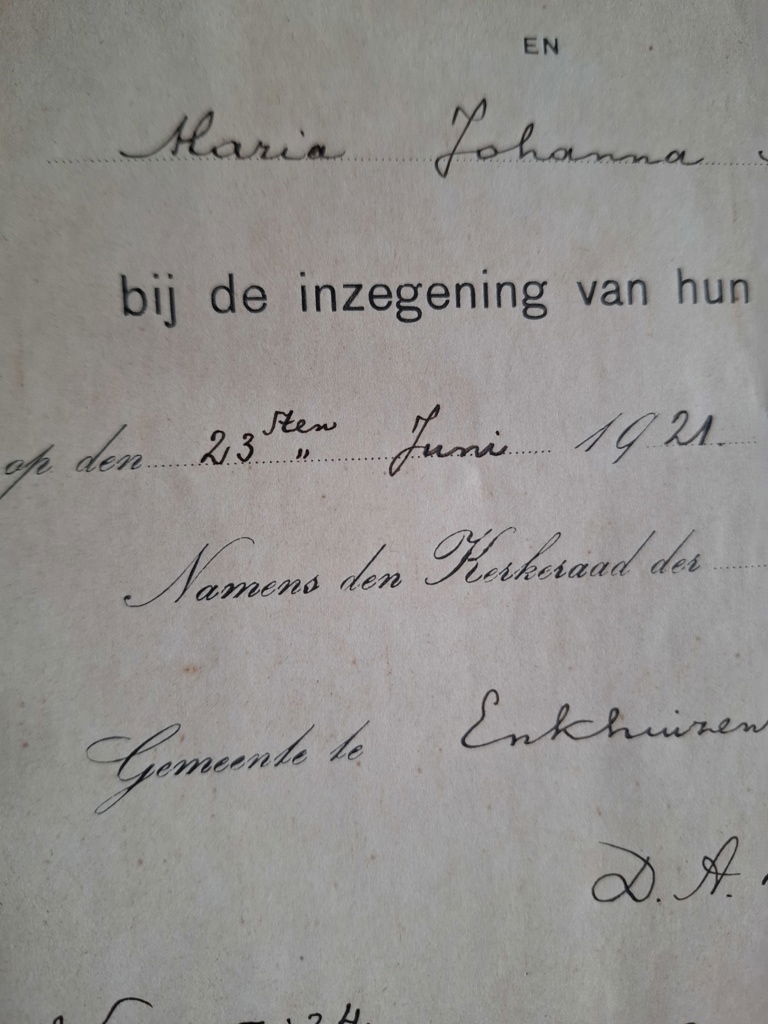 EN
Maria Johanna
bij de inzegening van hun
op den 23sten Juni 1921.
Namens den Kerkeraad der
Gemeente te Enkhuizen
D. A.